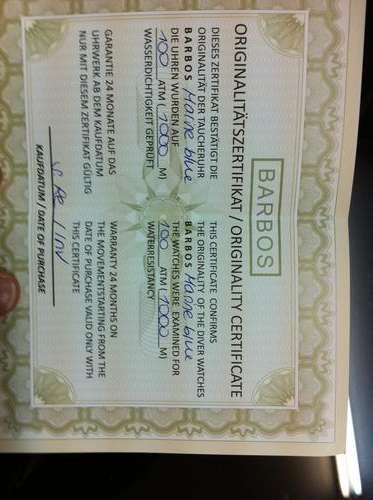 BARBOS
ORIGINALITÄTSZERTIFIKAT / ORIGINALITY CERTIFICATE
DIESES ZERTIFIKAT BESTÄTIGT DIE
ORIGINALITÄT DER TAUCHERUHR
BARBOS Marine blue
DIE UHREN WURDEN AUF
100 ATM (1000 M)
WASSERDICHTIGKEIT GEPRÜFT
THIS CERTIFICATE CONFIRMS
THE ORIGINALITY OF THE DIVER WATCHES
BARBOS Marine blue
THE WATCHES WERE EXAMINED FOR
100 ATM (1000 M)
WATERRESISTANCY
GARANTIE 24 MONATE AUF DAS
UHRWERK AB DEM KAUFDATUM
NUR MIT DIESEM ZERTIFIKAT GÜLTIG
WARRANTY 24 MONTHS ON
THE MOVEMENTSTARTING FROM THE
DATE OF PURCHASE VALID ONLY WITH
THIS CERTIFICATE
KAUFDATUM / DATE OF PURCHASE